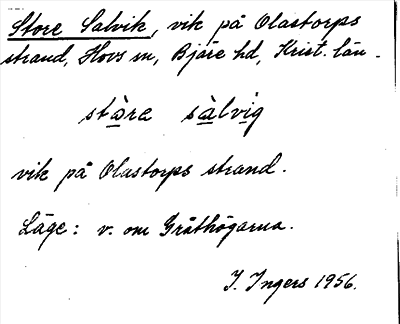 Store Salvik, vik på Olastorps
strand, Hovs sn, Bjäre hd, Krist. län.
stàra sàlvig
vik på Olastorps strand.
Läge: v. om Gråthögarna.
I. Ingers 1956.